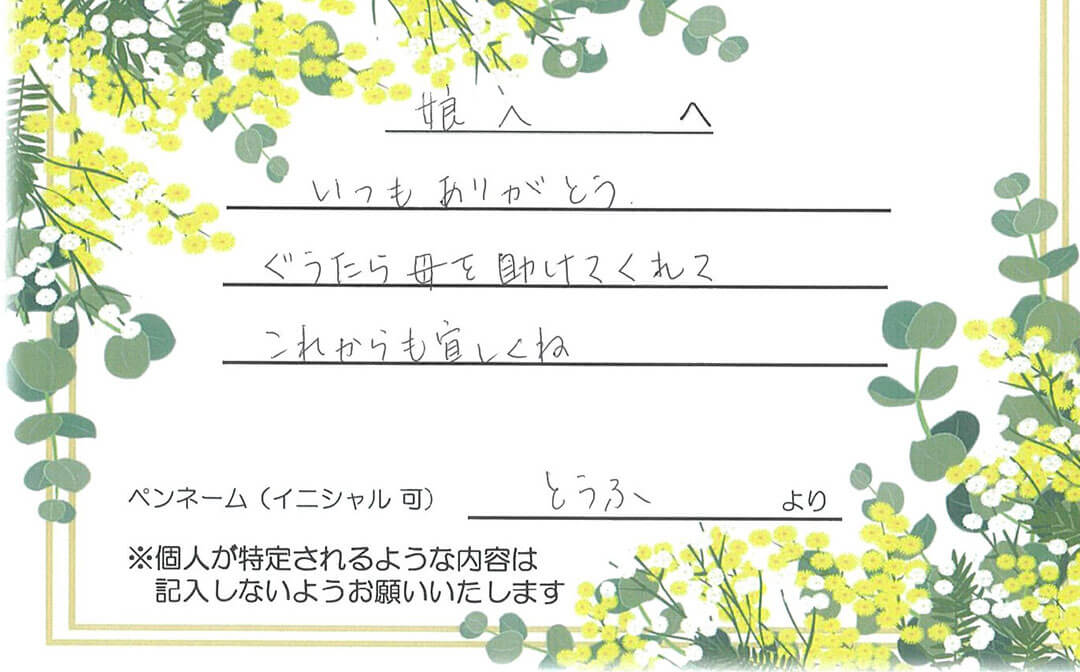 娘へ へ
いつもありがとう.
ぐうたら母を助けてくれて
これからも宜しくね
ペンネーム（イニシャル 可） とうふ より
※個人が特定されるような内容は
記入しないようお願いいたします